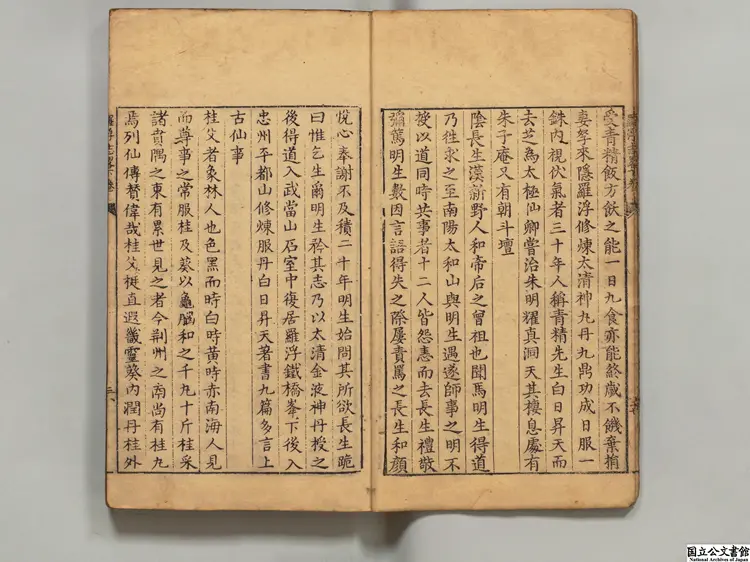 受青精飯方飲之能一日九食亦能終歲不饑棄捐
妻孥來隱羅浮修煉太清神丹九鼎功成日服一
銖內視伏氣者三十年人稱青精先生白日昇天而
去芝為太極仙卿嘗治朱明耀真洞天其棲息處有
朱子庵又有朝斗壇
陰長生漢新野人和帝后之曾祖也聞馬明生得道
乃徃求之至南陽太和山與明生遇遂師事之明不
授以道同時共事者十二人皆怨恚而去長生禮敬
彌篤明生數因言語得失之際屢責罵之長生和顏
悅心奉謝不及積二十年明生始問其所欲長生跪
曰惟乞生爾明生矜其志乃以太清金液神丹授之
後得道入武當山石室中復居羅浮鐵橋峯下後入
忠州平都山修煉服丹白日昇天著書九篇多言上
古仙事
桂父者象林人也色黑而時白時黃時赤南海人見
而尊事之常服桂及葵以龜腦和之千丸十斤桂采
諸賁隅之東有累世見之者今荆州之南尚有桂丸
焉列仙傳贊偉哉桂父挺直遐畿靈葵內潤丹桂外
国立公文書館
National Archives of Japan